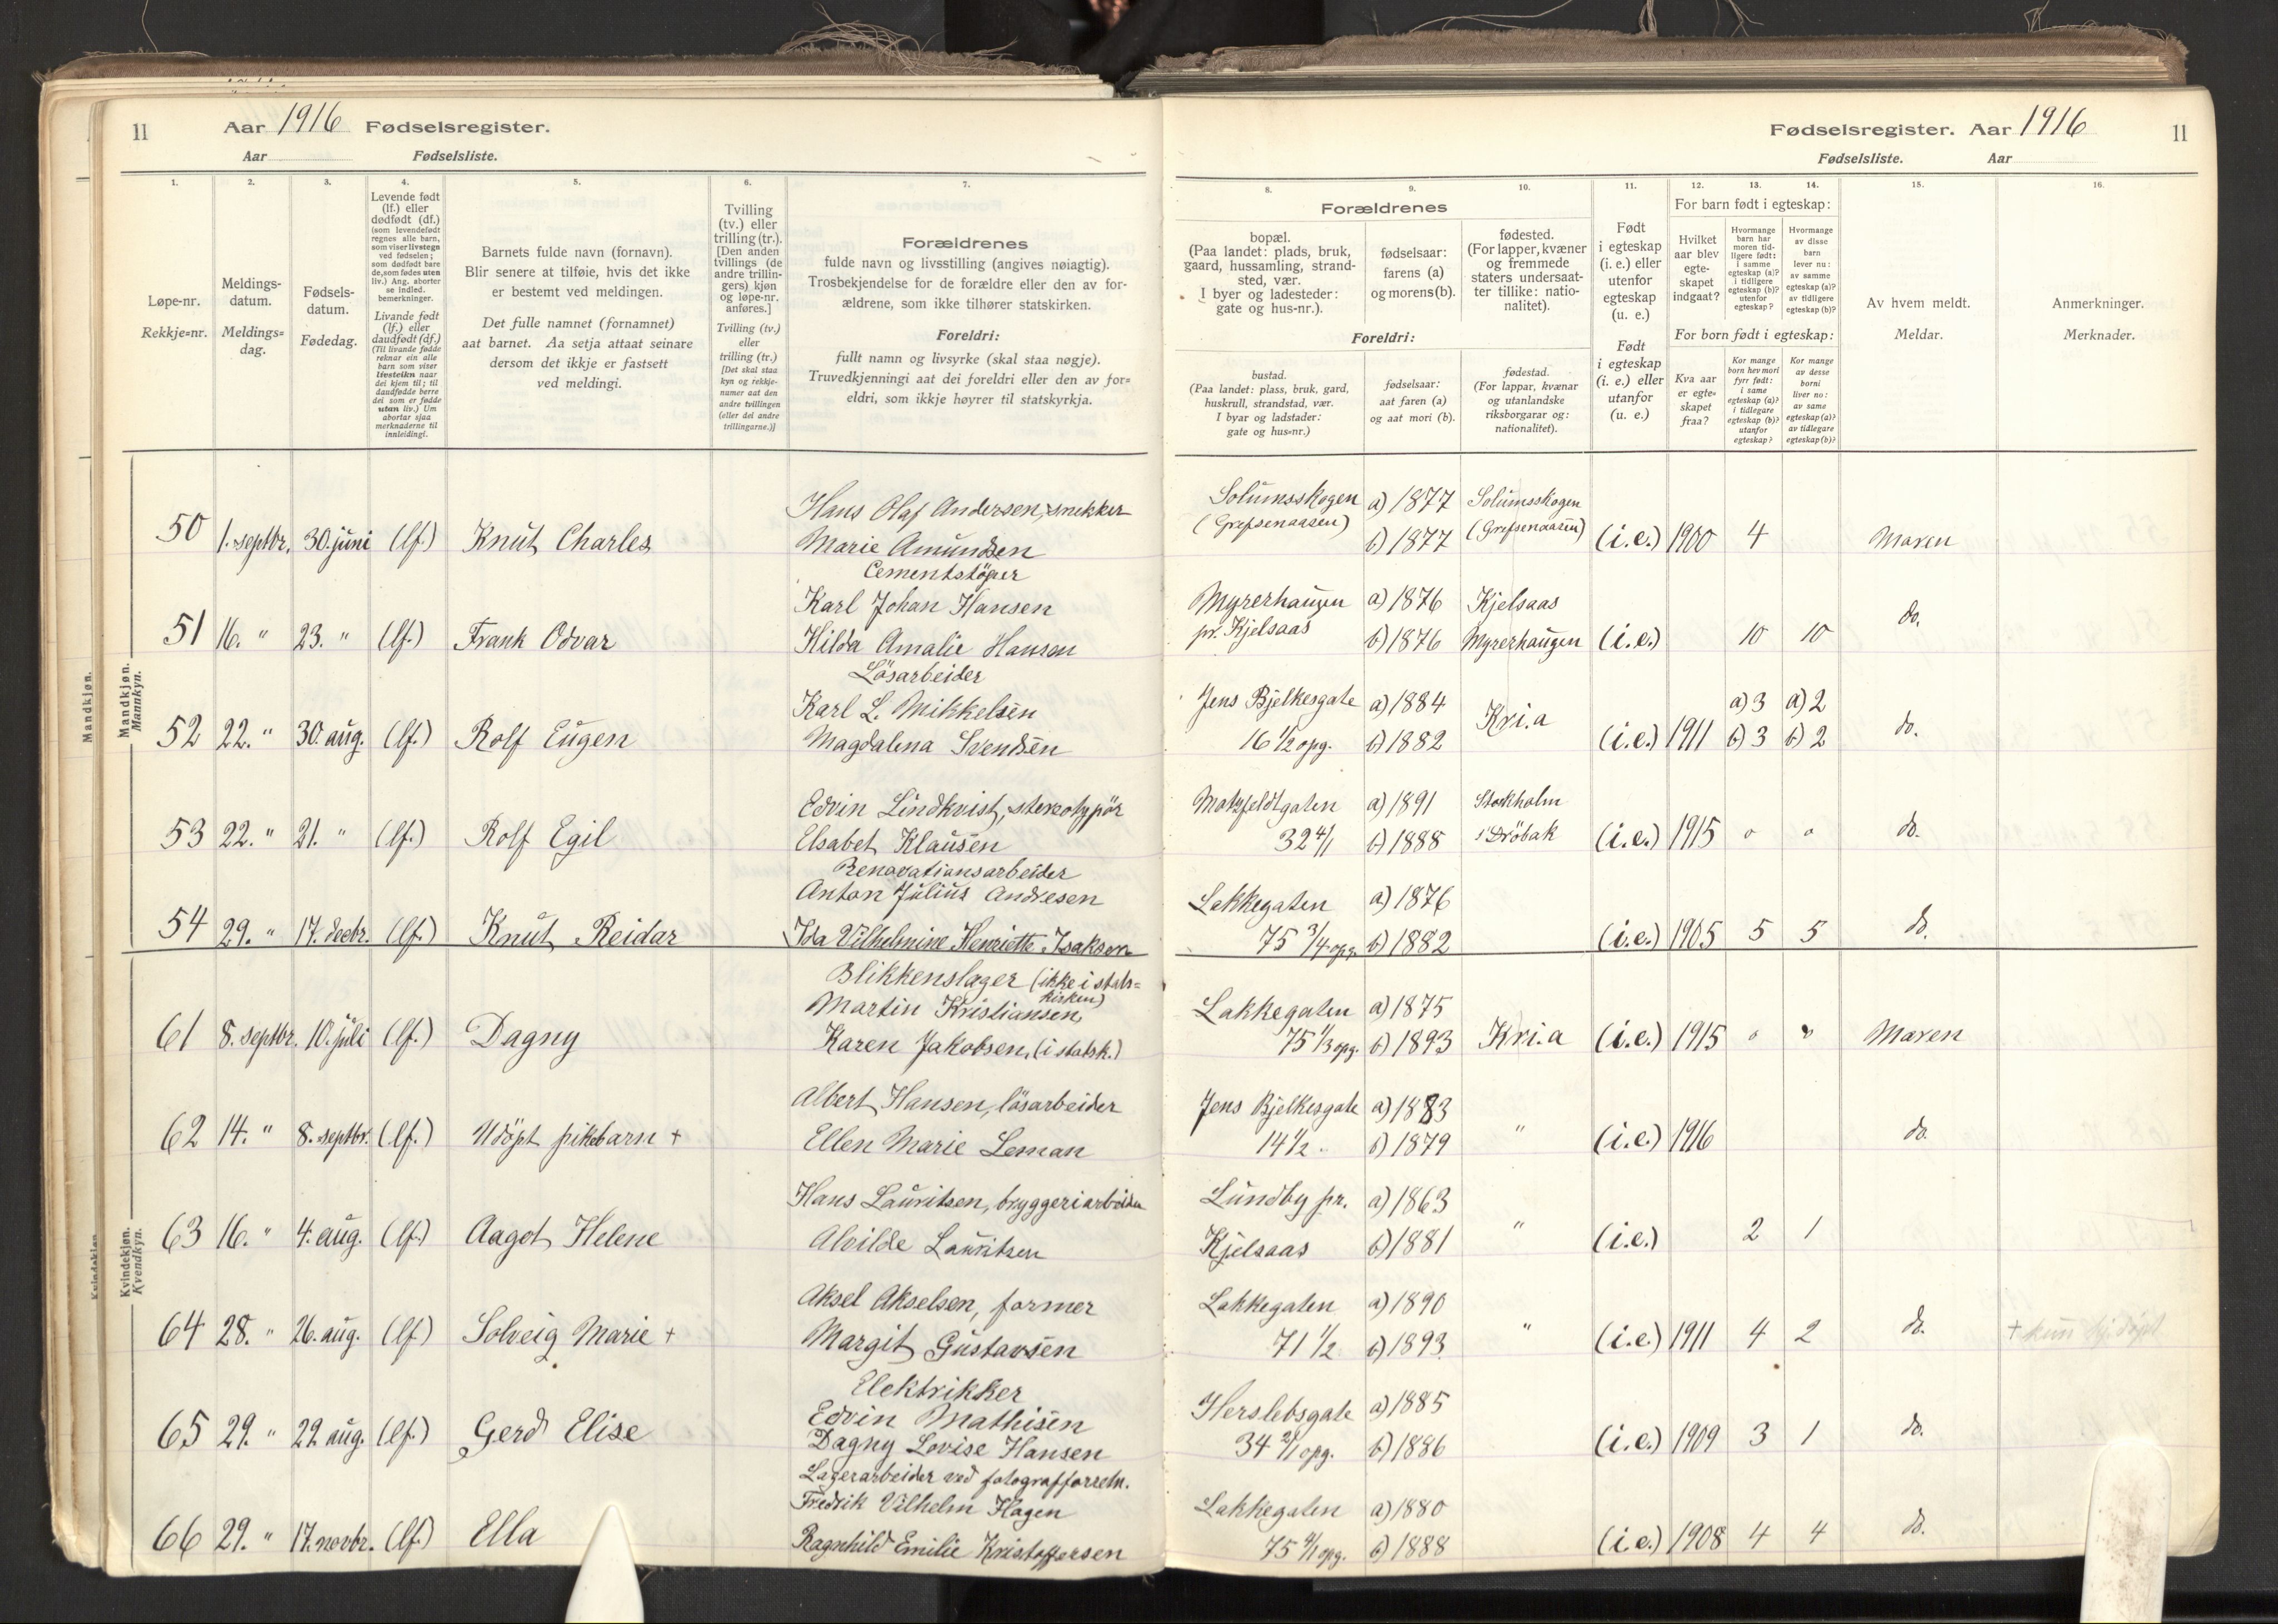 11 Aar 1916 Fødselsregister.
Aar Fødselsliste.
Fødselsregister. Aar 1916 11
Fødselsliste. Aar
1. 2. 3. 4. 5. 6. 7.
Løpe-nr.
Rekkje=nr.
Meldings-
datum.
Meldings=
dag.
Fødsels-
datum.
Fødedag.
Levende født
(lf.) eller
dødfødt (df.)
(som levendefødt
regnes alle barn,
som viser livstegn
ved fødselen;
som dødfødt bare
de, som fødes uten
liv.) Ang. aborter
se indled.
bemerkninger.
Livande født
(lf.) eller
daudfødt (df.)
(Til livande fødde
reknar ein alle
barn som viser
livsteikn naar
dei kjem til; til
daudfødde berre
dei som er fødde
utan liv.) Um
abortar sjaa
merknaderne til
innleidingi.
Barnets fulde navn (fornavn).
Blir senere at tilføie, hvis det ikke
er bestemt ved meldingen.
Det fulle namnet (fornamnet)
aat barnet. Aa setja attaat seinare
dersom det ikkje er fastsett
ved meldingi.
Tvilling
(tv.) eller
trilling (tr.).
[Den anden
tvillings (de
andre trillin-
gers) kjøn
og løpe-nr.
anføres.]
Tvilling (tv.)
eller
trilling (tr.)
[Det skal staa
kyn og rekkje-
numer aat den
andre tvillingen
(eller dei andre
trillingarne.)]
Forældrenes
fulde navn og livsstilling (angives nøiagtig).
Trosbekjendelse for de forældre eller den av for-
ældrene, som ikke tilhører statskirken.
Foreldri:
fullt namn og livsyrke (skal staa nøgje).
Truvedkjenningi aat dei foreldri eller den av for=
eldri, som ikkje høyrer til statskyrkja.
8. 9. 10. 11. 12. 13. 14. 15. 16.
Forældrenes
bopæl.
(Paa landet: plads, bruk,
gaard, hussamling, strand-
sted, vær.
I byer og ladesteder:
gate og hus-nr.).
fødselsaar:
farens (a)
og morens (b).
fødested.
(For lapper, kvæner
og fremmede
staters undersaat-
ter tillike: natio-
nalitet).
Foreldri:
bustad.
(Paa landet: plass, bruk, gard,
huskrull, strandstad, vær.
I byar og ladstader:
gate og hus=nr.)
fødselsaar:
aat faren (a)
og aat mori (b).
fødestad.
(For lappar, kvænar
og utanlandske
riksborgarar og:
nationalitet).
Født
i egteskap
(i. e.) eller
utenfor
egteskap
(u. e.)
Født
i egteskap
(i. e.) eller
utanfor
(u. e.)
For barn født i egteskap:
Hvilket
aar blev
egte-
skapet
indgaat?
Hvormange
barn har
moren tid-
ligere født:
i samme
egteskap (a)?
i tidligere
egteskap (b)?
utenfor
egteskap?
Hvormange
av disse
barn
lever nu:
av samme
egteskap (a)?
av tidligere
egteskap (b)?
For born født i egteskap:
Kva aar
er egte=
skapet
fraa?
Kor mange
born hev mori
fyrr født:
i same
egteskap (a)?
i tidlegare
egteskap (b)?
utanfor
egteskap?
Kor mange
av desse
borni
liver no:
av same
egteskap (a)?
av tidlegare
egteskap (b)?
Av hvem meldt.
Meldar.
Anmerkninger.
Merknader.
Mandkjøn.
Mandkjøn.
Mannkyn.
Hans Olaf Andersen, snekker Solumsskogen a) 1877 Solumsskogen
(Grefsenaasen) (Grefsenaasen)
50 1. septbr. 30. juni (lf.) Knut Charles Marie Amundsen b) 1877 (i.e.) 1900 4 Moren
Cementstöper
Karl Johan Hansen Myrerhaugen a) 1876 Kjelsaas
51 16. " 23. " (lf.) Frank Odvar Hilda Amalie Hansen pr. Kjelsaas b) 1876 Myrerhaugen (i.e.) 10 10 do.
Lösarbeider
Karl L. Mikkelsen Jens Bjelkesgate a) 1884 Kri.a a) 3 a) 2
52 22. " 30. aug. (lf.) Rolf Eugen Magdalena Svendsen 16 1/2 opg. b) 1882 (i.e.) 1911 b) 3 b) 2 do.
Edvin Lindkvist, stereotypör Motzfeldtgaten a) 1891 Stockholm
53 22. " 21. " (lf.) Rolf Egil Elsabet Klausen 32 4/1 b) 1888 Dröbak (i.e.) 1915 0 0 do.
Renovationsarbeider
Anton Julius Andresen Lakkegaten a) 1876
54 29. " 17. decbr. (lf.) Knut Reidar Ida Vilhelmine Henriette Isaksen 75 3/4 opg. b) 1882 (i.e.) 1905 5 5 do.
Kvindekjøn.
Kvindekjøn.
Kvendkyn.
Blikkenslager (ikke i stats=
kirken)
Martin Kristiansen, Lakkegaten a) 1875
61 8. septbr. 10. juli (lf.) Dagny Karen Jakobsen, (i statsk.) 75 1/3 opg. b) 1893 Kri.a (i.e.) 1915 0 0 Moren
Albert Hansen, lösarbeider Jens Bjelkesgate a) 1883
62 14. " 8. septbr. (lf.) Udöpt pikebarn + Ellen Marie Leman 14 1/2 b) 1879 " (i.e.) 1916 do.
Hans Lauritsen, bryggeriarbeider Lundby pr. a) 1863
63 16. " 4. aug. (lf.) Aagot Helene Alvilde Lauritsen Kjelsaas b) 1881 " (i.e.) 2 1
Aksel Akselsen, former Lakkegaten a) 1890
64 28. " 26. aug. (lf.) Solveig Marie + Margit Gustavsen 71 1/2 b) 1893 " (i.e.) 1911 4 2 do. + kun hj.döpt
Elektrikker
Edvin Mathisen Herslebsgate a) 1885
65 29. " 22. aug. (lf.) Gerd Elise Dagny Lovise Hansen 34 2/1 opg. b) 1886 (i.e.) 1909 3 1 do.
Lagerarbeider ved fotografforretn.
Fredrik Vilhelm Hagen Lakkegaten a) 1880
66 29. " 17. novbr. (lf.) Ella Ragnhild Emilie Kristoffersen 75 4/1 opg. b) 1888 (i.e.) 1908 4 4 do.